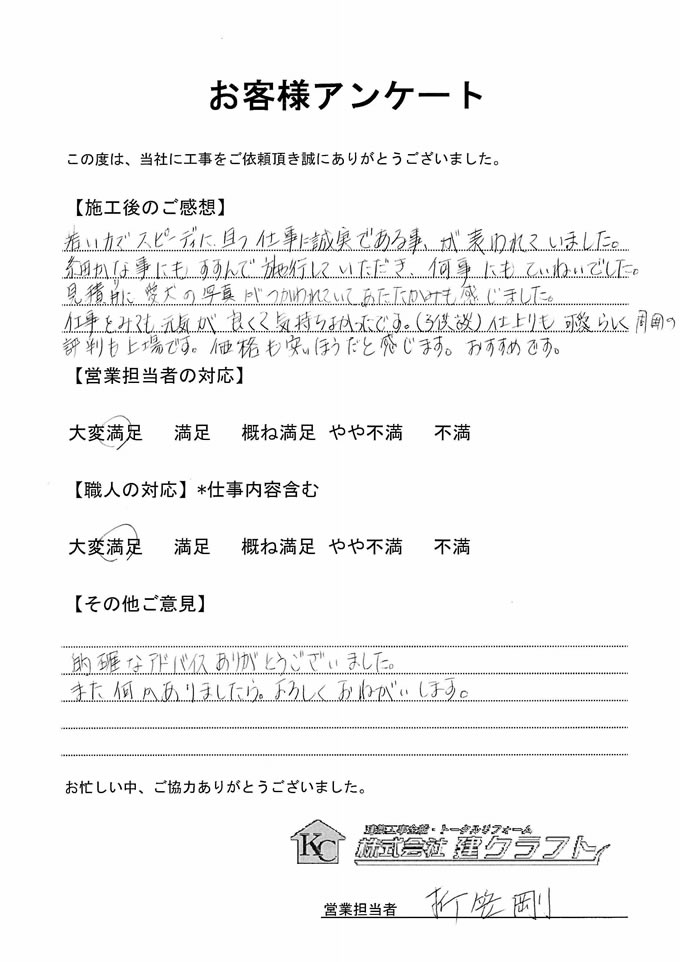 お客様アンケート
この度は、当社に工事をご依頼頂き誠にありがとうございました。
【施工後のご感想】
若い力でスピーディに、且つ仕事に誠実である事、が表われていました。
細かな事にもすすんで施行していただき、何事にもていねいでした。
見積書に愛犬の写真がつかわれていてあたたかみも感じました。
仕事をみても元気が良くて気持ちよかったです。仕上りも可愛らしく周囲の
評判も上場です。価格も安いほうだと感じます。おすすめです。
【営業担当者の対応】
大変満足 満足 概ね満足 やや不満 不満
【職人の対応】*仕事内容含む
大変満足 満足 概ね満足 やや不満 不満
【その他ご意見】
的確なアドバイスありがとうございました。
また何かありましたら。よろしくおねがいします。
お忙しい中、ご協力ありがとうございました。
KC
建築工事全般・トータルリフォーム
株式会社 建クラフト
営業担当者 折笠剛